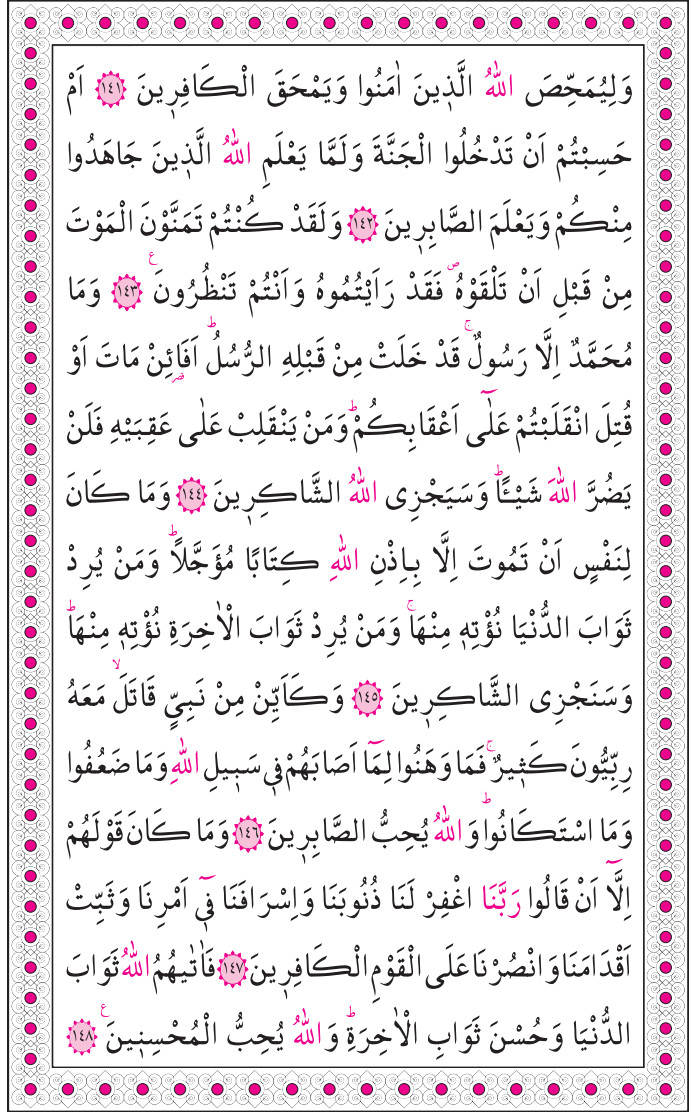 وَلِيُمَحِّصَ اللّٰهُ الَّذ۪ينَ اٰمَنُوا وَيَمْحَقَ الْكَافِر۪ينَ ﴿١٤١﴾ اَمْ
حَسِبْتُمْ اَنْ تَدْخُلُوا الْجَنَّةَ وَلَمَّا يَعْلَمِ اللّٰهُ الَّذ۪ينَ جَاهَدُوا
مِنْكُمْ وَيَعْلَمَ الصَّابِر۪ينَ ﴿١٤٢﴾ وَلَقَدْ كُنْتُمْ تَمَنَّوْنَ الْمَوْتَ
مِنْ قَبْلِ اَنْ تَلْقَوْهُۖ فَقَدْ رَاَيْتُمُوهُ وَاَنْتُمْ تَنْظُرُونَ۟ ﴿١٤٣﴾ وَمَا
مُحَمَّدٌ اِلَّا رَسُولٌۚ قَدْ خَلَتْ مِنْ قَبْلِهِ الرُّسُلُۜ اَفَا۬ئِنْ مَاتَ اَوْ
قُتِلَ انْقَلَبْتُمْ عَلٰٓى اَعْقَابِكُمْۜ وَمَنْ يَنْقَلِبْ عَلٰى عَقِبَيْهِ فَلَنْ
يَضُرَّ اللّٰهَ شَيْـًٔاۜ وَسَيَجْزِى اللّٰهُ الشَّاكِر۪ينَ ﴿١٤٤﴾ وَمَا كَانَ
لِنَفْسٍ اَنْ تَمُوتَ اِلَّا بِاِذْنِ اللّٰهِ كِتَابًا مُؤَجَّلًاۜ وَمَنْ يُرِدْ
ثَوَابَ الدُّنْيَا نُؤْتِه۪ مِنْهَاۚ وَمَنْ يُرِدْ ثَوَابَ الْاٰخِرَةِ نُؤْتِه۪ مِنْهَاۜ
وَسَنَجْزِى الشَّاكِر۪ينَ ﴿١٤٥﴾ وَكَاَيِّنْ مِنْ نَبِيٍّ قَاتَلَۙ مَعَهُ
رِبِّيُّونَ كَث۪يرٌۚ فَمَا وَهَنُوا لِمَٓا اَصَابَهُمْ ف۪ى سَب۪يلِ اللّٰهِ وَمَا ضَعُفُوا
وَمَا اسْتَكَانُواۜ وَاللّٰهُ يُحِبُّ الصَّابِر۪ينَ ﴿١٤٦﴾ وَمَا كَانَ قَوْلَهُمْ
اِلَّٓا اَنْ قَالُوا رَبَّنَا اغْفِرْ لَنَا ذُنُوبَنَا وَاِسْرَافَنَا ف۪ٓى اَمْرِنَا وَثَبِّتْ
اَقْدَامَنَا وَانْصُرْنَا عَلَى الْقَوْمِ الْكَافِر۪ينَ ﴿١٤٧﴾ فَاٰتٰيهُمُ اللّٰهُ ثَوَابَ
الدُّنْيَا وَحُسْنَ ثَوَابِ الْاٰخِرَةِۜ وَاللّٰهُ يُحِبُّ الْمُحْسِن۪ينَ۟ ﴿١٤٨﴾